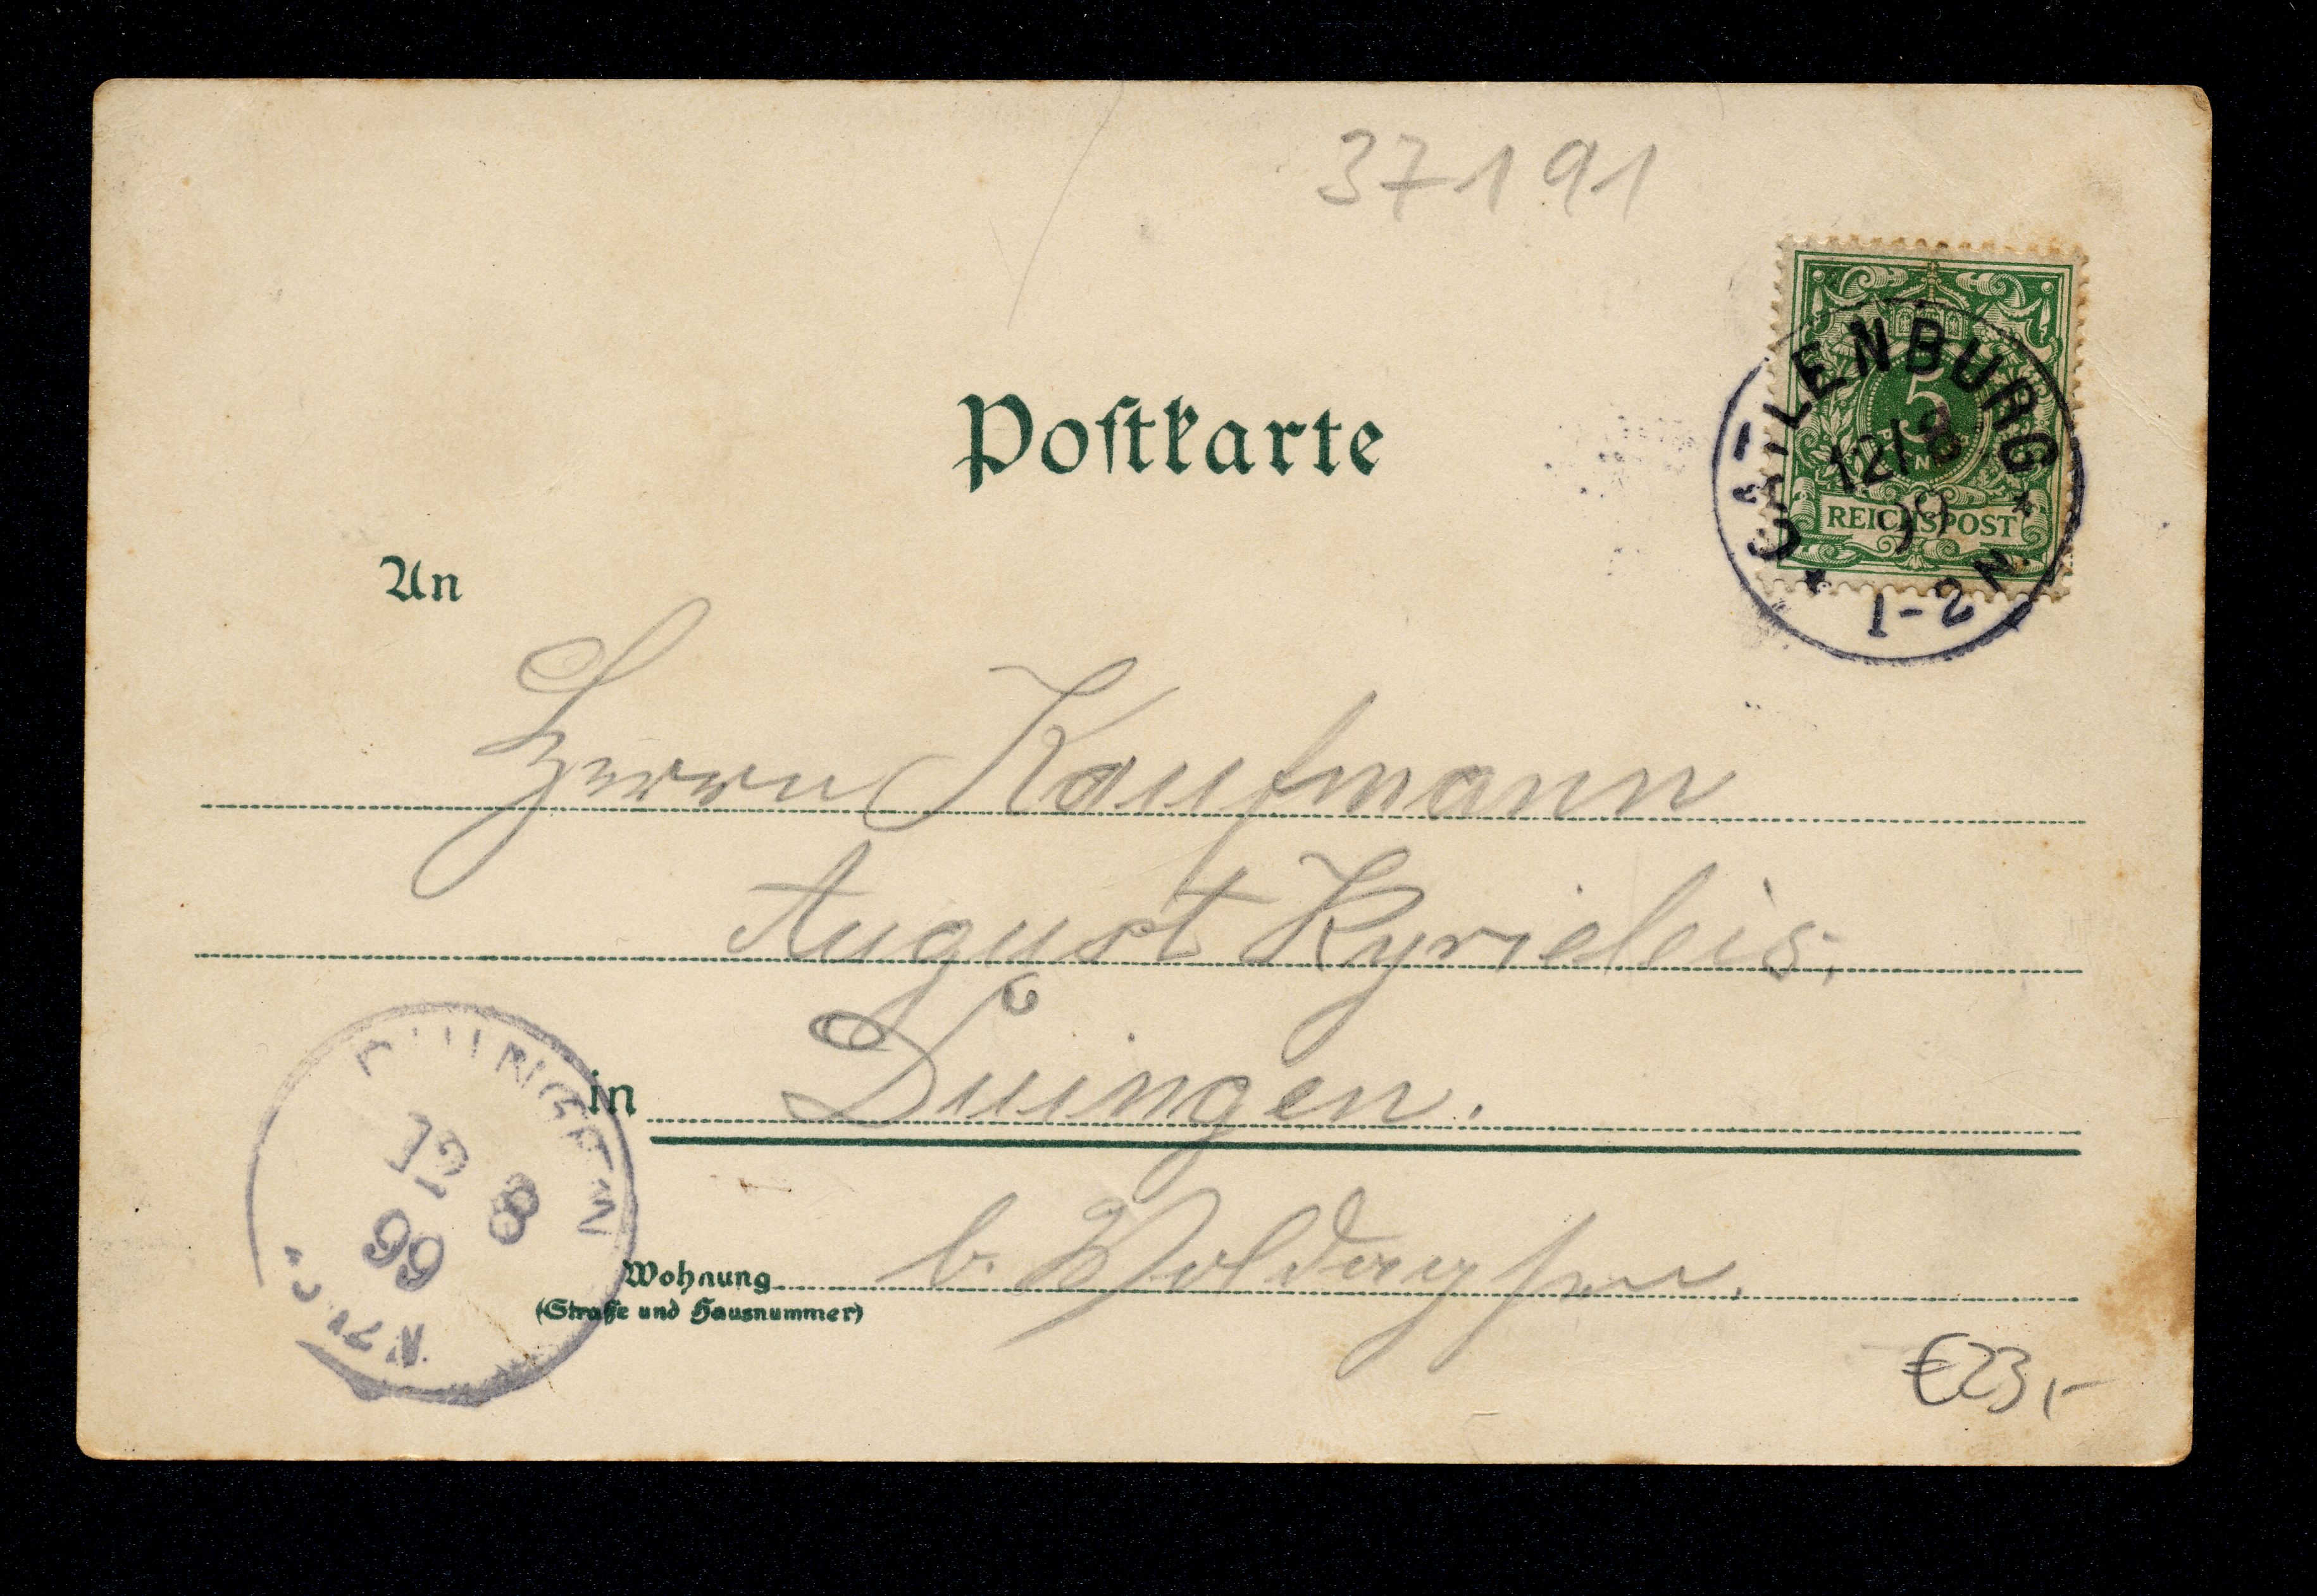 37191
Postkarte
5
REICHSPOST
CATLENBURG
12/8
99
1-2N.
An
Herrn Kaufmann
August Kyrieleis,
in Duingen.
DUINGEN
12 8
99
Wohnung b.
(Straße und Hausnummer)
€23,-